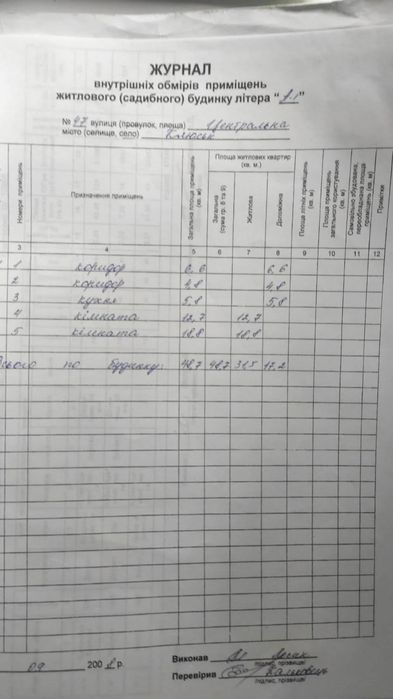 ЖУРНАЛ
внутрішніх обмірів приміщень
житлового (садибного) будинку літера "А-І"
№ 47 вулиця (провулок, площа) Центральна
місто (селище, село) Клюськ
Номери приміщень
Призначення приміщень
Загальна площа приміщень (кв. м)
Площа житлових квартир (кв. м.)
Загальна (сума гр. 8 та 9)
Житлова
Допоміжна
Площа літніх приміщень (кв. м)
Площа приміщень загального користування (кв. м)
Самовільно збудована, переобладнана площа приміщень (кв. м)
Примітки
3 4 5 6 7 8 9 10 11 12
1 коридор 6,6 6,6
2 коридор 4,8 4,8
3 кухня 5,8 5,8
4 кімната 12,7 12,7
5 кімната 18,8 18,8
Всього по будинку: 48,7 48,7 31,5 17,2
09 200 р.
Виконав
підпис, прізвище
Перевірив
підпис, прізвище